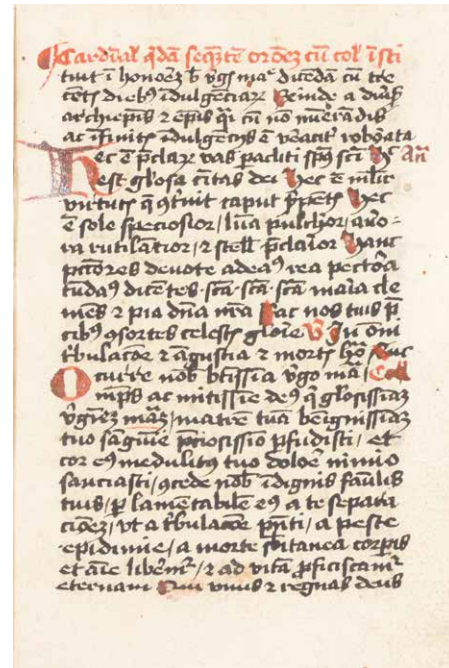 Cardinal' q̄dā seq̄ntē or̄oēz cū col' īsti
tuit ī honorēz b̄ v̄gīs mar̄ dicēdā cū tre
cētz diebꝰ īdulgēciarꝝ Deinde a diūsꝭ
archiep̄is ⁊ ep̄is q̄i cū nō nūerādis
ac īfinitꝭ īdulgēcijs ē veracit̄ roborata
Hec ē p̄clarꝝ vas paracliti sp̄us sc̄i Hec Añ
est gl'osa ciuitas dei Hec ē mulīer
virtutꝭ q̄ ꝯtriuit caput ſ̄pētꝭ Hec
ē sole speciosior / luna pulchior / auro-
ra rutilātior / ⁊ stell' p̄clarior Hanc
pctōres deuote adeamꝰ rea pectora
tūdamꝰ dicētes · sc̄a · sc̄a · sc̄a maria cle
mēs ⁊ pia dn̄a nr̄a Fac nos tuis p̄
cibꝰ ꝯsortes celestꝭ glor̄ie V̄ In om̄i
t̄bulac̄oe ⁊ āgustia ⁊ mortꝭ hōr̄ Suc
curre nob̄ bt̄issīa v̄go mar̄ Coll'
Omp̄s ac mitissime deꝰ q̄i gl'osissīaz
v̄gīez mar̄az / matrē tuā benignissīaz
tuo sanguīe p̄ciosissīo ꝑfudisti / et
cor eꝰ medulitꝰ tuo dolor̄e nimio
sauciasti / ꝯcede nob̄ īdignis faūlis
tuis / ꝑ lamētabilē eꝰ a te separa
cionez / vt a t̄bulac̄oe p̄nti / a peste
epidimie / a morte s̄bitanea corp̄is
et aīe liberem̄ / ⁊ ad vitā ꝓficiscam̄
eternam Qui viuis ⁊ regnas deus